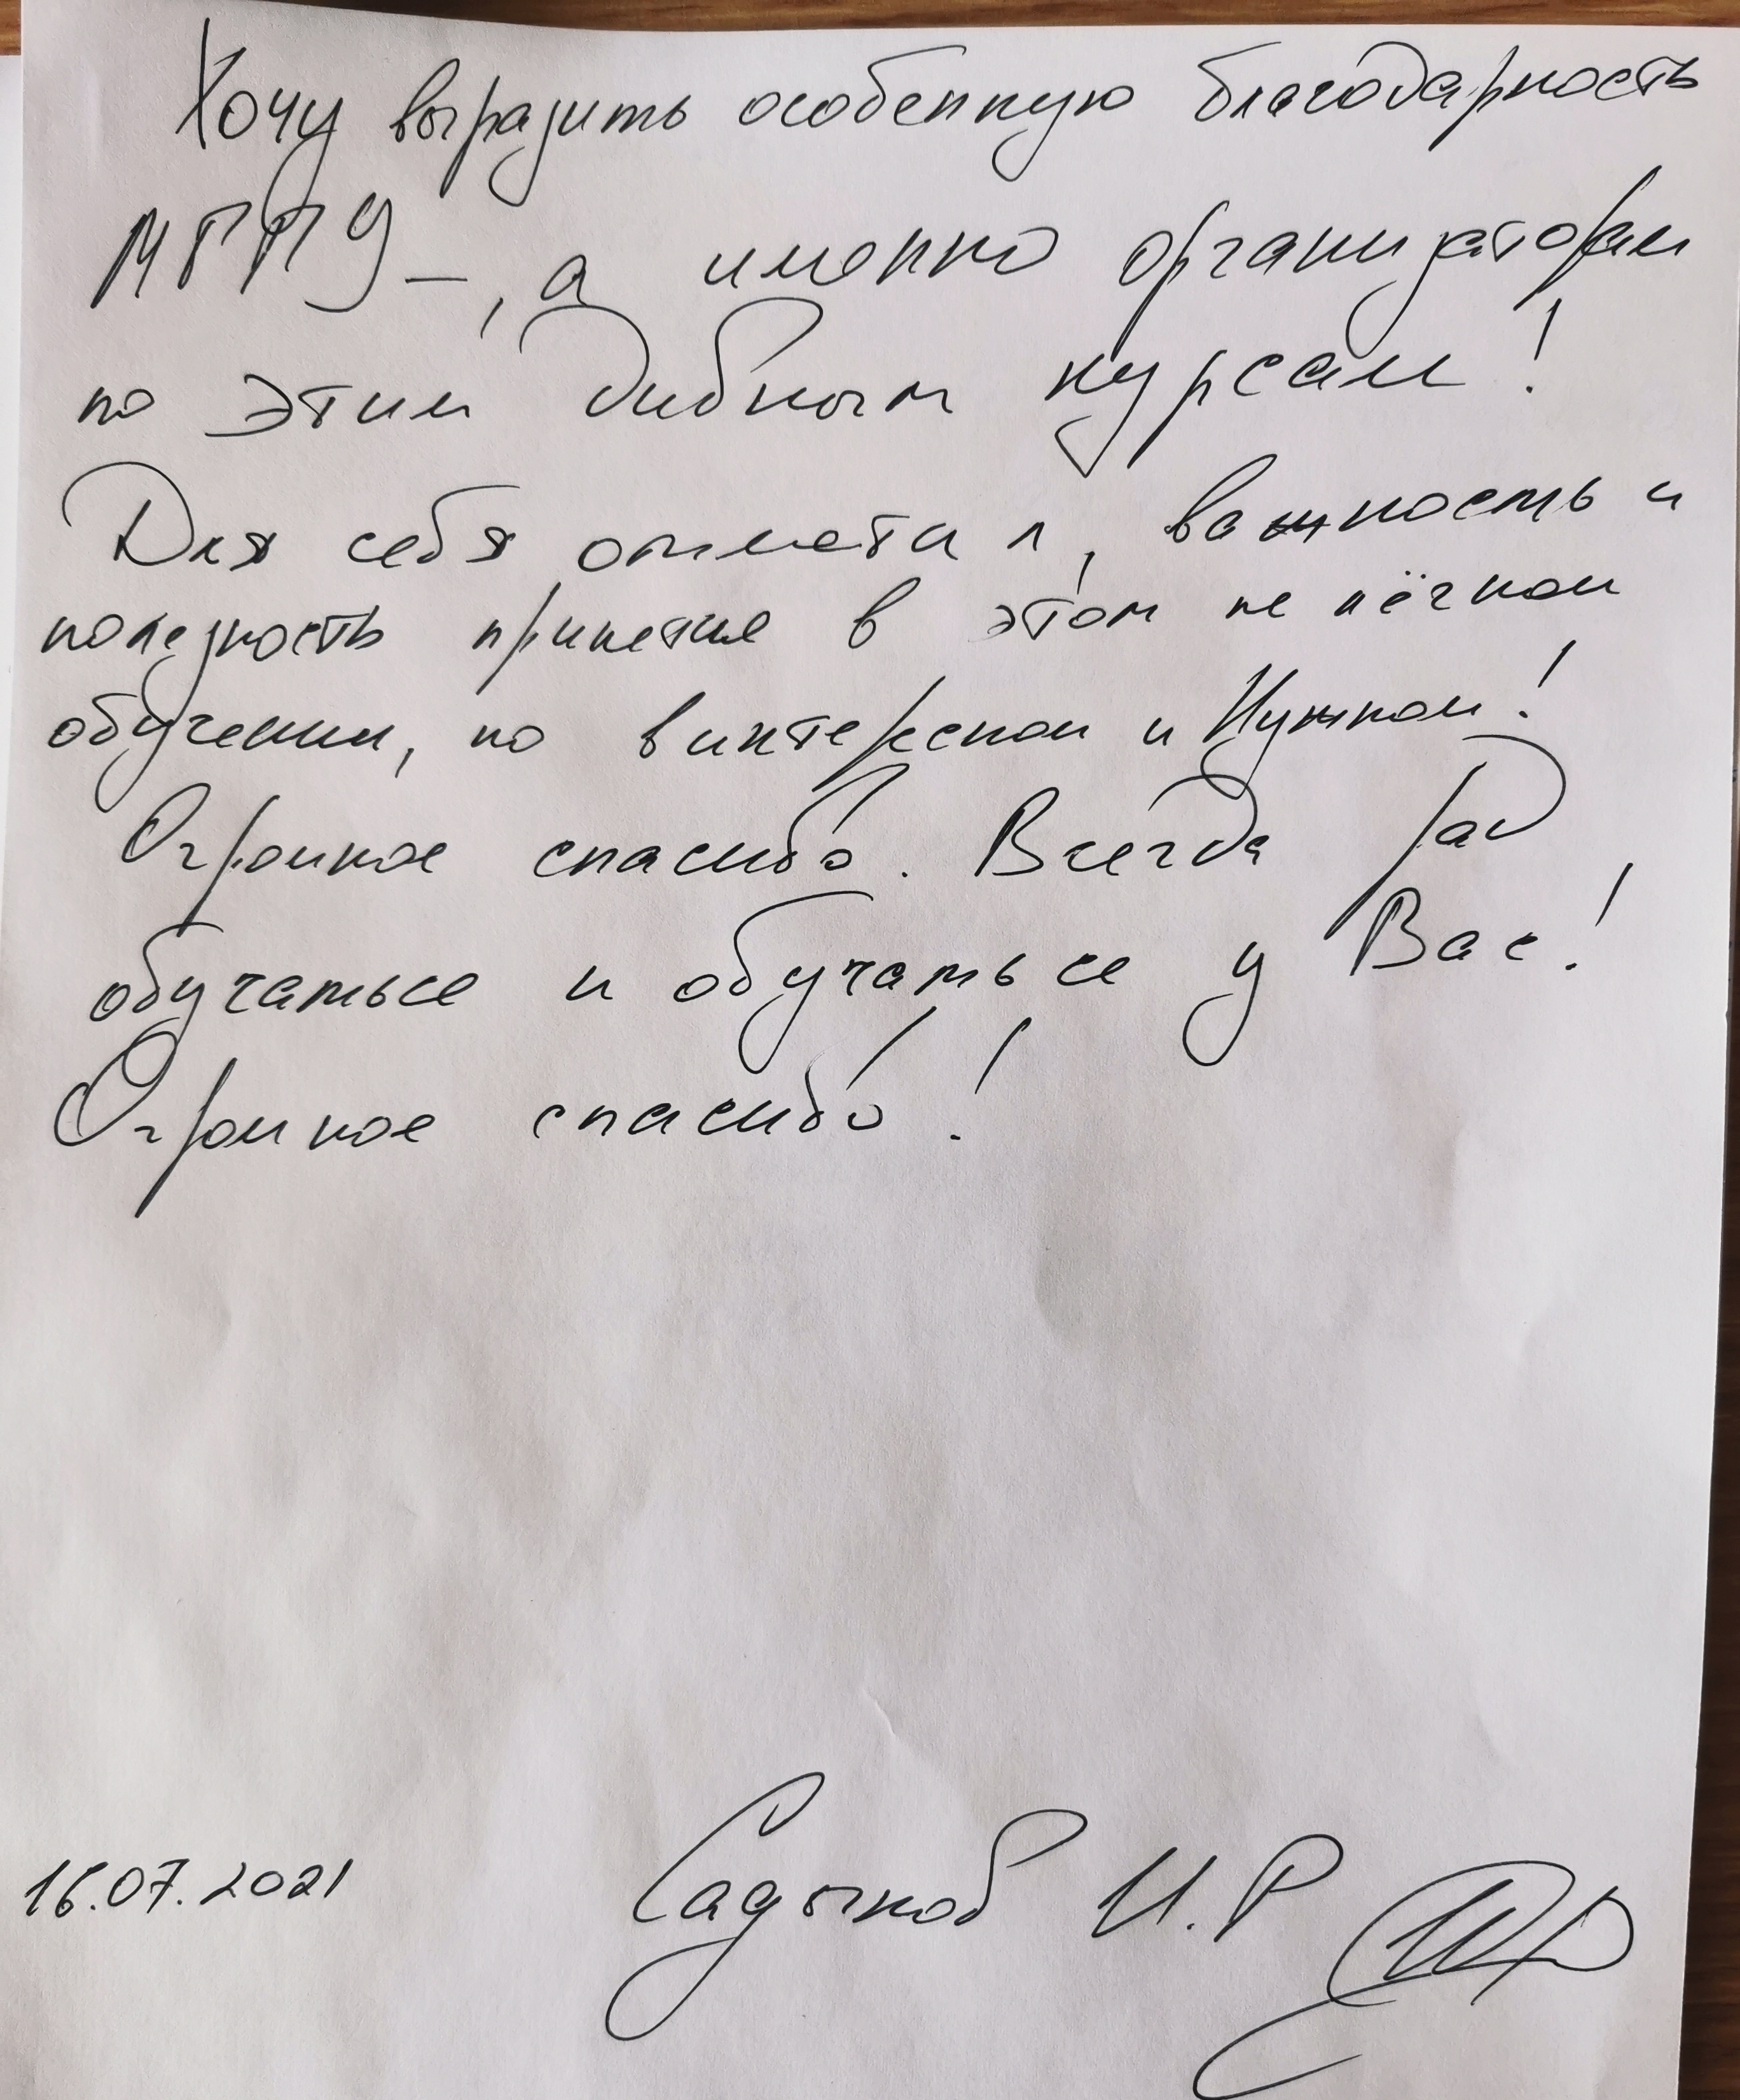 Хочу выразить особенную благодарность
МГППУ –, а именно организаторам
по этим дивным курсам!
Для себя отметил, важность и
полезность принятия в этом не лёгком
обучении, но в интересном и Нужном!
Огромное спасибо. Всегда рад
обучаться и обучаться у Вас!
Огромное спасибо!
16.07.2021 Садыков И.Р